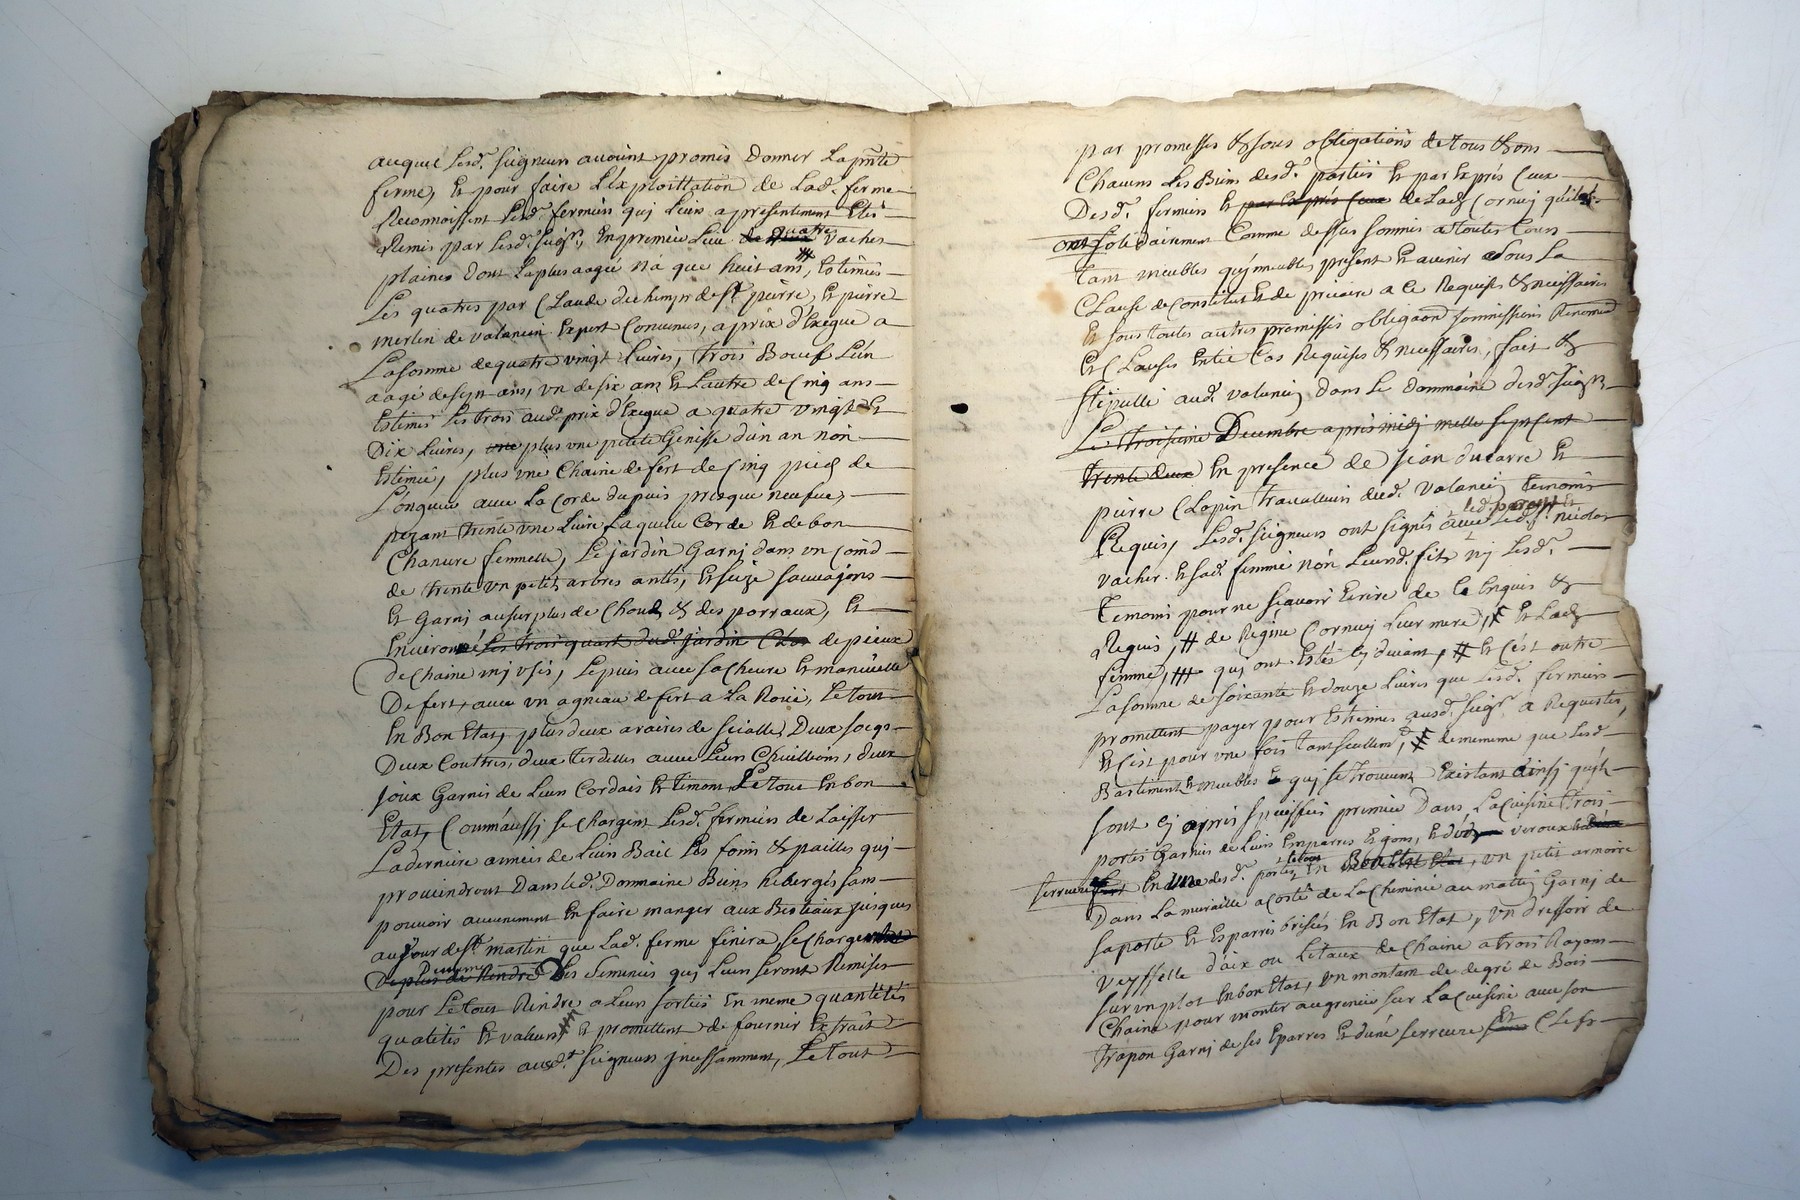 auquel lesd. seigneurs avoint promis donner la pnte
ferme, et pour faire l'exploittation de lad. ferme
Reconnoissent lesd. fermiers quj leurs a presentement Etés
Remis par lesd. seigrs, En premier Lieu de quatre vaches
plaines dont la plus aagée n'a que huit ans, Estimées
Les quatres par Claude duchemin de St pierre, et pierre
merlin de valancin Expert Convenus, a prix d'Exegue a
La somme de quatre vingt Livres, trois Boeuf L'un
aagé de sept ans, un de six ans et L'autre de Cinq ans
Estimés les trois aud. prix d'Exegue a quatre vingt et
Dix Livres, une plus une petite Genisse d'un an non
Estimée, plus une Chaine de fert de Cinq pied de
Longueur avec la Corde du puis presque neufue,
pezant trente une Livre laquelle Corde Est de bon
Chanvre femmelle, Le jardin Garnj dans un Coind
de trente un petits arbres antés, et seize sauvajons
Et Garnj au surplus de Choud & des porraux, Et
Environné les trois quart dud. jardin Clos de pieux
de Chaine mj usés, Le puis avec sa Cheure et manivelle
De fert, avec un agneau de fert a La Roüe, Le tout
En Bon Etat, plus deux araires de seialle, Deux socqs
Deux Coutres, deux terdelles avec Leurs Chevillions, deux
joux Garnis de Leur Cordais et timons, Le tout En bon
Etat, Comm'aussj se Chargent Lesd. fermiers de Laisser
La derniere année de Leur Bail Les foins & pailles quj
proviendront Dans led. Dommaine Biens hebergés sans
pouvoir aucunement En faire manger aux Bestiaux jusques
au jour de St martin que Lad. ferme finira, se Chargent
de plus de Rendre Les Semences quj Leur seront Remises
pour Le tout Rendre a Leur sortie En meme quantités
qualités et valeurs Et promettent de fournir Extrait
Des presentes ausd. seigneurs jncessamment, Le tout
par promesses & sous obligations de tous & ons
Chacuns Les Biens desd. parties Et par Exprés Ceux
Desd. fermiers Et par Exprés Ceux de Lad. Cornuj qu'ils
ont solidairement Comme dessus soumis a toutes Cours
tant meubles qu'jmmeubles present Et avenir Sous La
Clause de Constitut Et de precaire a Ce Requises & necessaires
Et sous toutes autres promesses obligaõns sommissions Renoncié
Et Clauses En tel Cas Requises & necessaires, fait &
stipullé aud. valancin dans Le dommaine desd. seigrs
Le troisieme Decembre apres midj mille sept cent
trente deux En presence de jean ducarre Et
pierre Clopin travailleurs dud. valancin temoins
Requis, Lesd. seigneurs ont signés avec led. nicolas
vacher Et sad. femme non Leursd. fils nj Lesd.
temoins pour ne sçavoir Ecrire de Ce Enquis &
Requis, # de Regine Cornuj Leur mere, Et Lad.
femme, quj ont Estés Cj devant, # Et C'est outre
La somme de soixante Et douze Livres que Lesd. fermiers
promettent payer pour Estrennes ausd. seigrs a Requestes,
Et C'est pour une fois tant seullemt, de mememe que Lesd.
Bastiments Et meubles quj se trouvent Existant ainsj qu'jls
sont Cj aprés speciffiés premier Dans La Cuisine trois
portes Garnies de Leurs Emparres Et gons, Et veroux
serrure En une desd. portes Le tous En Bon Etat, un petit armoire
Dans La muraille a Costé de La Cheminée au mattin Garnj de
sa porte Et Esparres brisées En Bon Etat, un dressoir de
veysselle d'aix ou Litaux de Chaine a trois Rayons
sur un plot En bon Etat, un montant de degré de Bois
Chaine pour monter au grenier sur La Cuisine avec son
trapon Garnj de ses Eparres Et d'une serrure Et Clefs